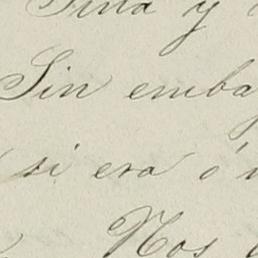 y
Sin emba
si era ó
Nos